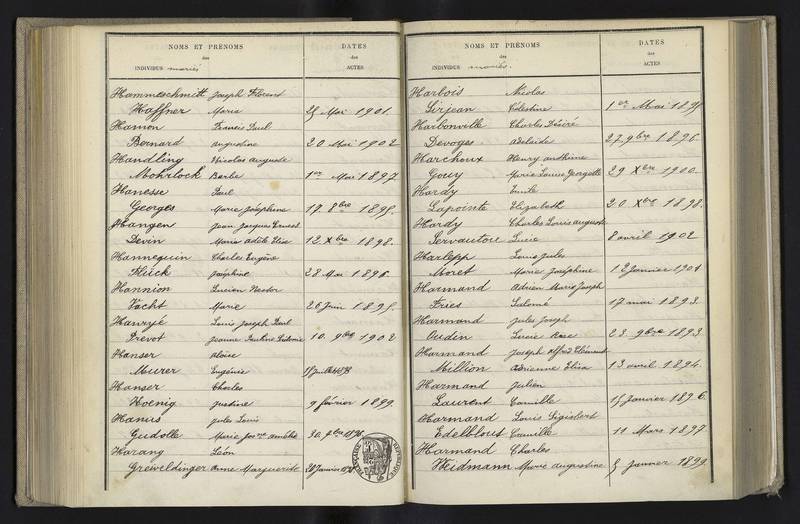 NOMS ET PRÉNOMS
des
INDIVIDUS mariés
DATES
des
ACTES
Hammeschmitt Joseph Florent
Haffner Maria 25 Mai 1901.
Hamon Francis Paul
Bernard Augustine 20 Mai 1902
Handling Nicolas Auguste
Mohrlock Barbe 1er Mai 1897.
Hanesse Paul
Georges Marie Joséphine 17 8bre 1895.
Hangen Jean Jacques Ernest
Devin Marie Adèle Elise 12 Xbre 1898.
Hannequin Charles Eugène
Klück Joséphine 28 Mai 1896.
Hannion Lucien Nestor
Vacht Marie 26 Juin 1895.
Hanryé Louis Joseph Paul
Prevot Jeanne Pauline 10. 9bre 1902
Hanser Aloïse
Murer Eugénie
Hanser Charles
Hoenig Justine 9 février 1899.
Hanus Jules Louis
Gudolle Marie 30. 9bre 1896
Harang Léon
Greiveldinger Anne Marguerite
NOMS ET PRÉNOMS
des
INDIVIDUS mariés.
DATES
des
ACTES
Harbois Nicolas
Sirjean Célestine 1er Mai
Harbonville Charles Désiré
Devoges Adelaïde 27 9bre 1896.
Harchoux Henry
Gouy Marie Louise Georgette 29 Xbre 1900.
Hardy Emile
Lapointe Elizabeth 20 Xbre 1898.
Hardy Charles Louis Auguste
Servautou Lucie 8 avril 1902
Harlepp Louis Jules
Moret Marie Joséphine 12 Janvier 1901
Harmand Adrien Marie Joseph
Fries Salomé 17 mai 1893.
Harmand Jules Joseph
Oudin Lucie Rose 23. 9bre 1893.
Harmand Joseph Alfred Clément
Million Adrienne Elisa 13 avril 1894.
Harmand Julien
Laurent Camille 15 Janvier 1896.
Harmand Louis Sigisbert
Edelblout Camille 11 Mars 1897
Harmand Charles
Heidmann Marie Augustine 5 Janvier 1899.